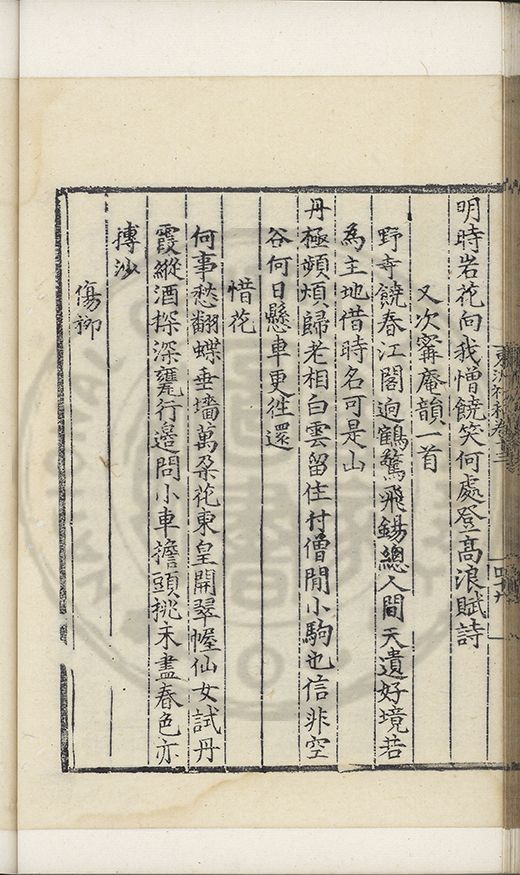 明時岩花向我憎饒笑何處登高浪賦詩
又次𡩋庵韻一首
野寺饒春江閣迥鶴驚飛錫總人間天遺好境若
為主地借時名可是山
丹極頻煩歸老相白雲留住村僧閒小駒也信非空
谷何日懸車更徃還
惜花
何事愁翻蝶垂墻萬朶花東皇開翠幄仙女試丹
霞縱酒㮨深甕行邉問小車擔頭挑未盡春色亦
摶沙
傷柳